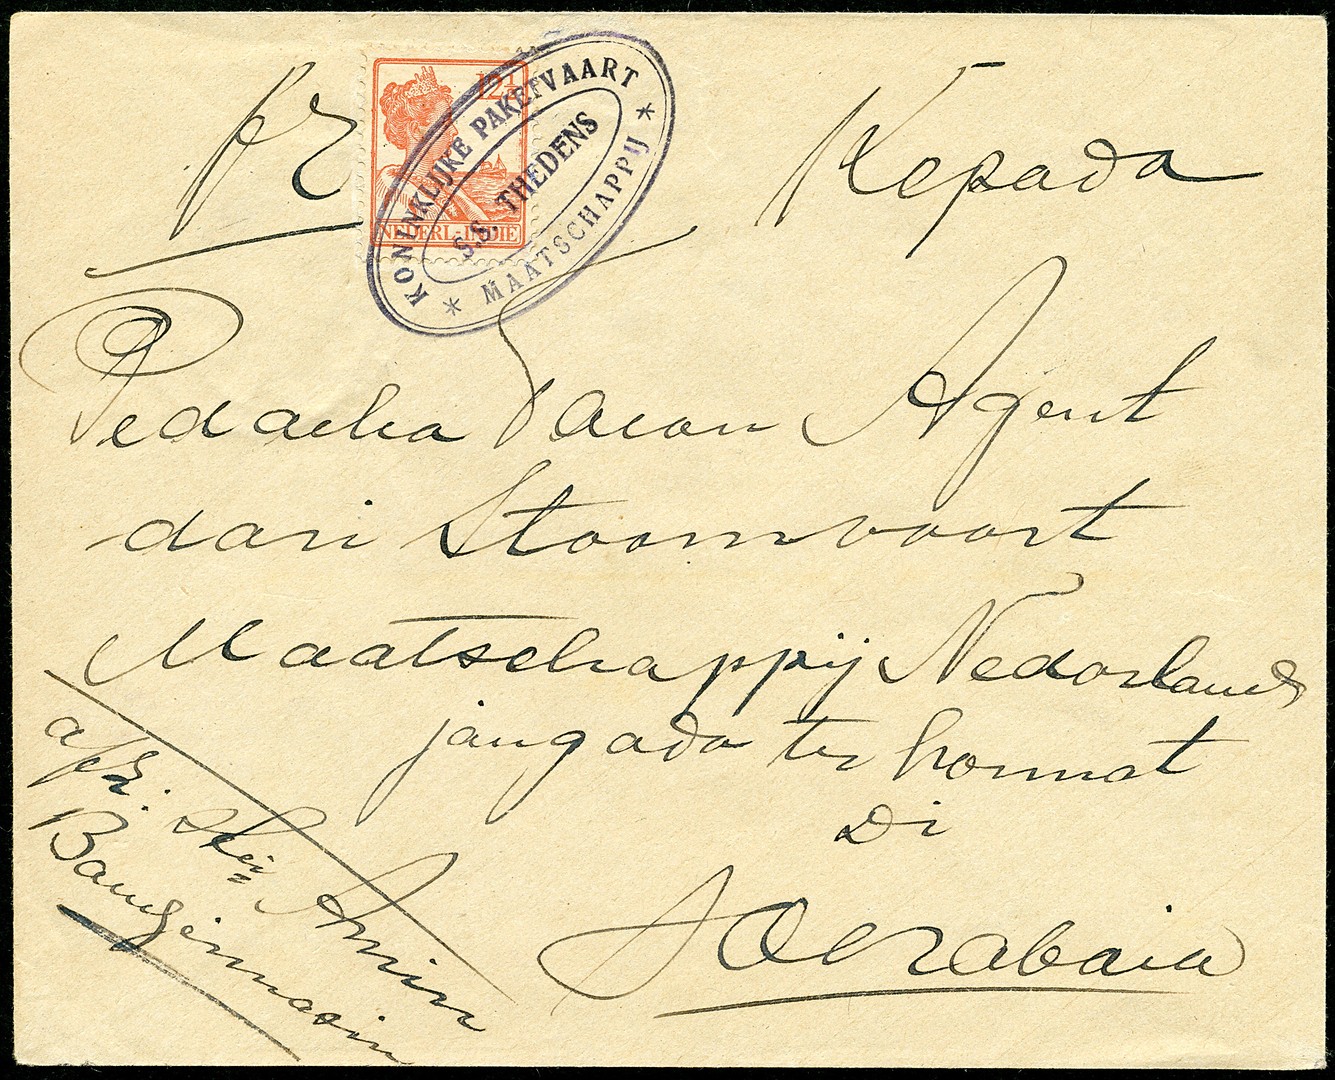 12½
NEDERL-INDIE
KONINKLIJKE PAKETVAART
MAATSCHAPPIJ
S.S. THEDENS
Kepada
Padoeka Toean Agent
dari Stoomvaart
Maatschappij Nederland
jang ada ter hormat
Di
Soerabaia
afz.
Amin
Bandjermasin